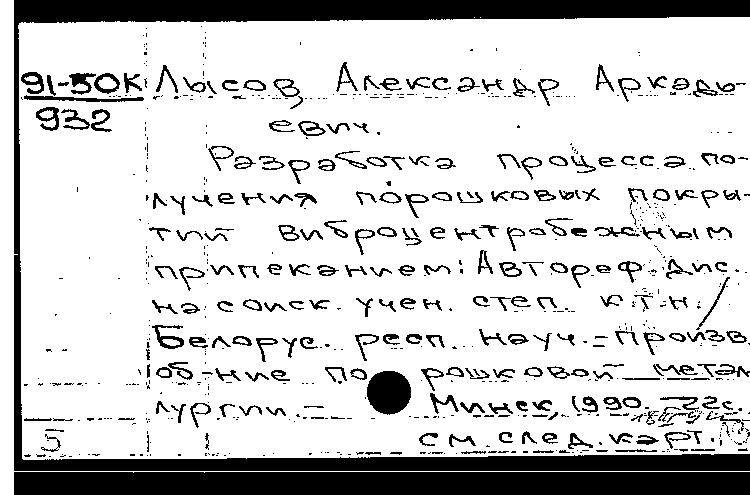 91-50К Лысов, Александр Аркадь-
932 евич.
Разработка процесса по-
лучения порошковых покры-
тий виброцентробежным
припеканием: Автореф. дис.
на соиск. учен. степ. к.т.н. /
Белорус. респ. науч.-произв.
об-ние порошковой метал-
лургии. - Минск, 1990. - 22с.
5 см. след. карт.